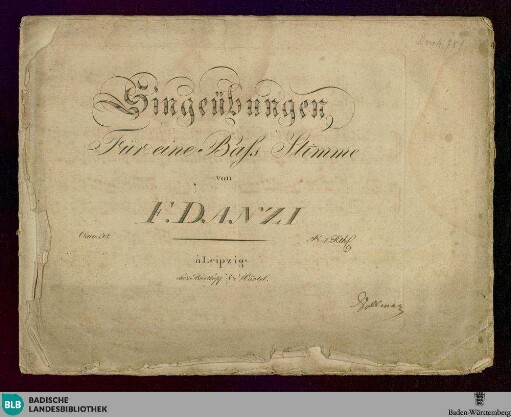 Singeübungen,
Für eine Bass Stimme
von
F. DANZI
Pr. 1 Rthl.
à Leipzig
chez Breitkopf & Härtel.
BLB
BADISCHE
LANDESBIBLIOTHEK
Baden-Württemberg